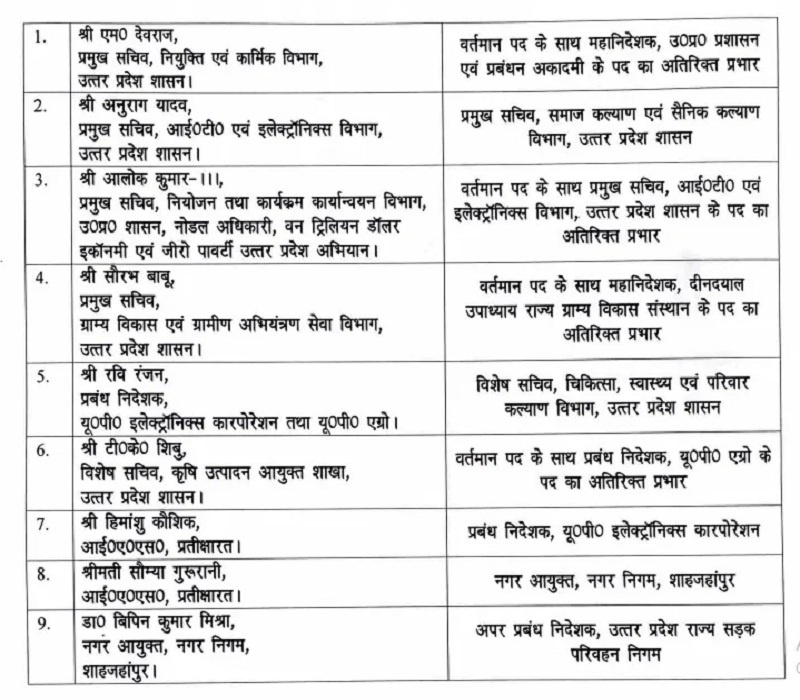 1.
श्री एम0 देवराज,
प्रमुख सचिव, नियुक्ति एवं कार्मिक विभाग,
उत्तर प्रदेश शासन।
वर्तमान पद के साथ महानिदेशक, उ0प्र0 प्रशासन
एवं प्रबंधन अकादमी के पद का अतिरिक्त प्रभार
2.
श्री अनुराग यादव,
प्रमुख सचिव, आई0टी0 एवं इलेक्ट्रॉनिक्स विभाग,
उत्तर प्रदेश शासन।
प्रमुख सचिव, समाज कल्याण एवं सैनिक कल्याण
विभाग, उत्तर प्रदेश शासन
3.
श्री आलोक कुमार-।।।,
प्रमुख सचिव, नियोजन तथा कार्यक्रम कार्यान्वयन विभाग,
उ0प्र0 शासन, नोडल अधिकारी, वन ट्रिलियन डॉलर
इकॉनमी एवं जीरो पावर्टी उत्तर प्रदेश अभियान।
वर्तमान पद के साथ प्रमुख सचिव, आई0टी0 एवं
इलेक्ट्रॉनिक्स विभाग, उत्तर प्रदेश शासन के पद का
अतिरिक्त प्रभार
4.
श्री सौरभ बाबू,
प्रमुख सचिव,
ग्राम्य विकास एवं ग्रामीण अभियंत्रण सेवा विभाग,
उत्तर प्रदेश शासन।
वर्तमान पद के साथ महानिदेशक, दीनदयाल
उपाध्याय राज्य ग्राम्य विकास संस्थान के पद का
अतिरिक्त प्रभार
5.
श्री रवि रंजन,
प्रबंध निदेशक,
यू0पी0 इलेक्ट्रॉनिक्स कारपोरेशन तथा यू0पी0 एग्रो।
विशेष सचिव, चिकित्सा, स्वास्थ्य एवं परिवार
कल्याण विभाग, उत्तर प्रदेश शासन
6.
श्री टी0के0 शिबु,
विशेष सचिव, कृषि उत्पादन आयुक्त शाखा,
उत्तर प्रदेश शासन।
वर्तमान पद के साथ प्रबंध निदेशक, यू0पी0 एग्रो के
पद का अतिरिक्त प्रभार
7.
श्री हिमांशु कौशिक,
आई0ए0एस0, प्रतीक्षारत।
प्रबंध निदेशक, यू0पी0 इलेक्ट्रॉनिक्स कारपोरेशन
8.
श्रीमती सौम्या गुरूरानी,
आई0ए0एस0, प्रतीक्षारत।
नगर आयुक्त, नगर निगम, शाहजहांपुर
9.
डा0 बिपिन कुमार मिश्रा,
नगर आयुक्त, नगर निगम,
शाहजहांपुर।
अपर प्रबंध निदेशक, उत्तर प्रदेश राज्य सड़क
परिवहन निगम